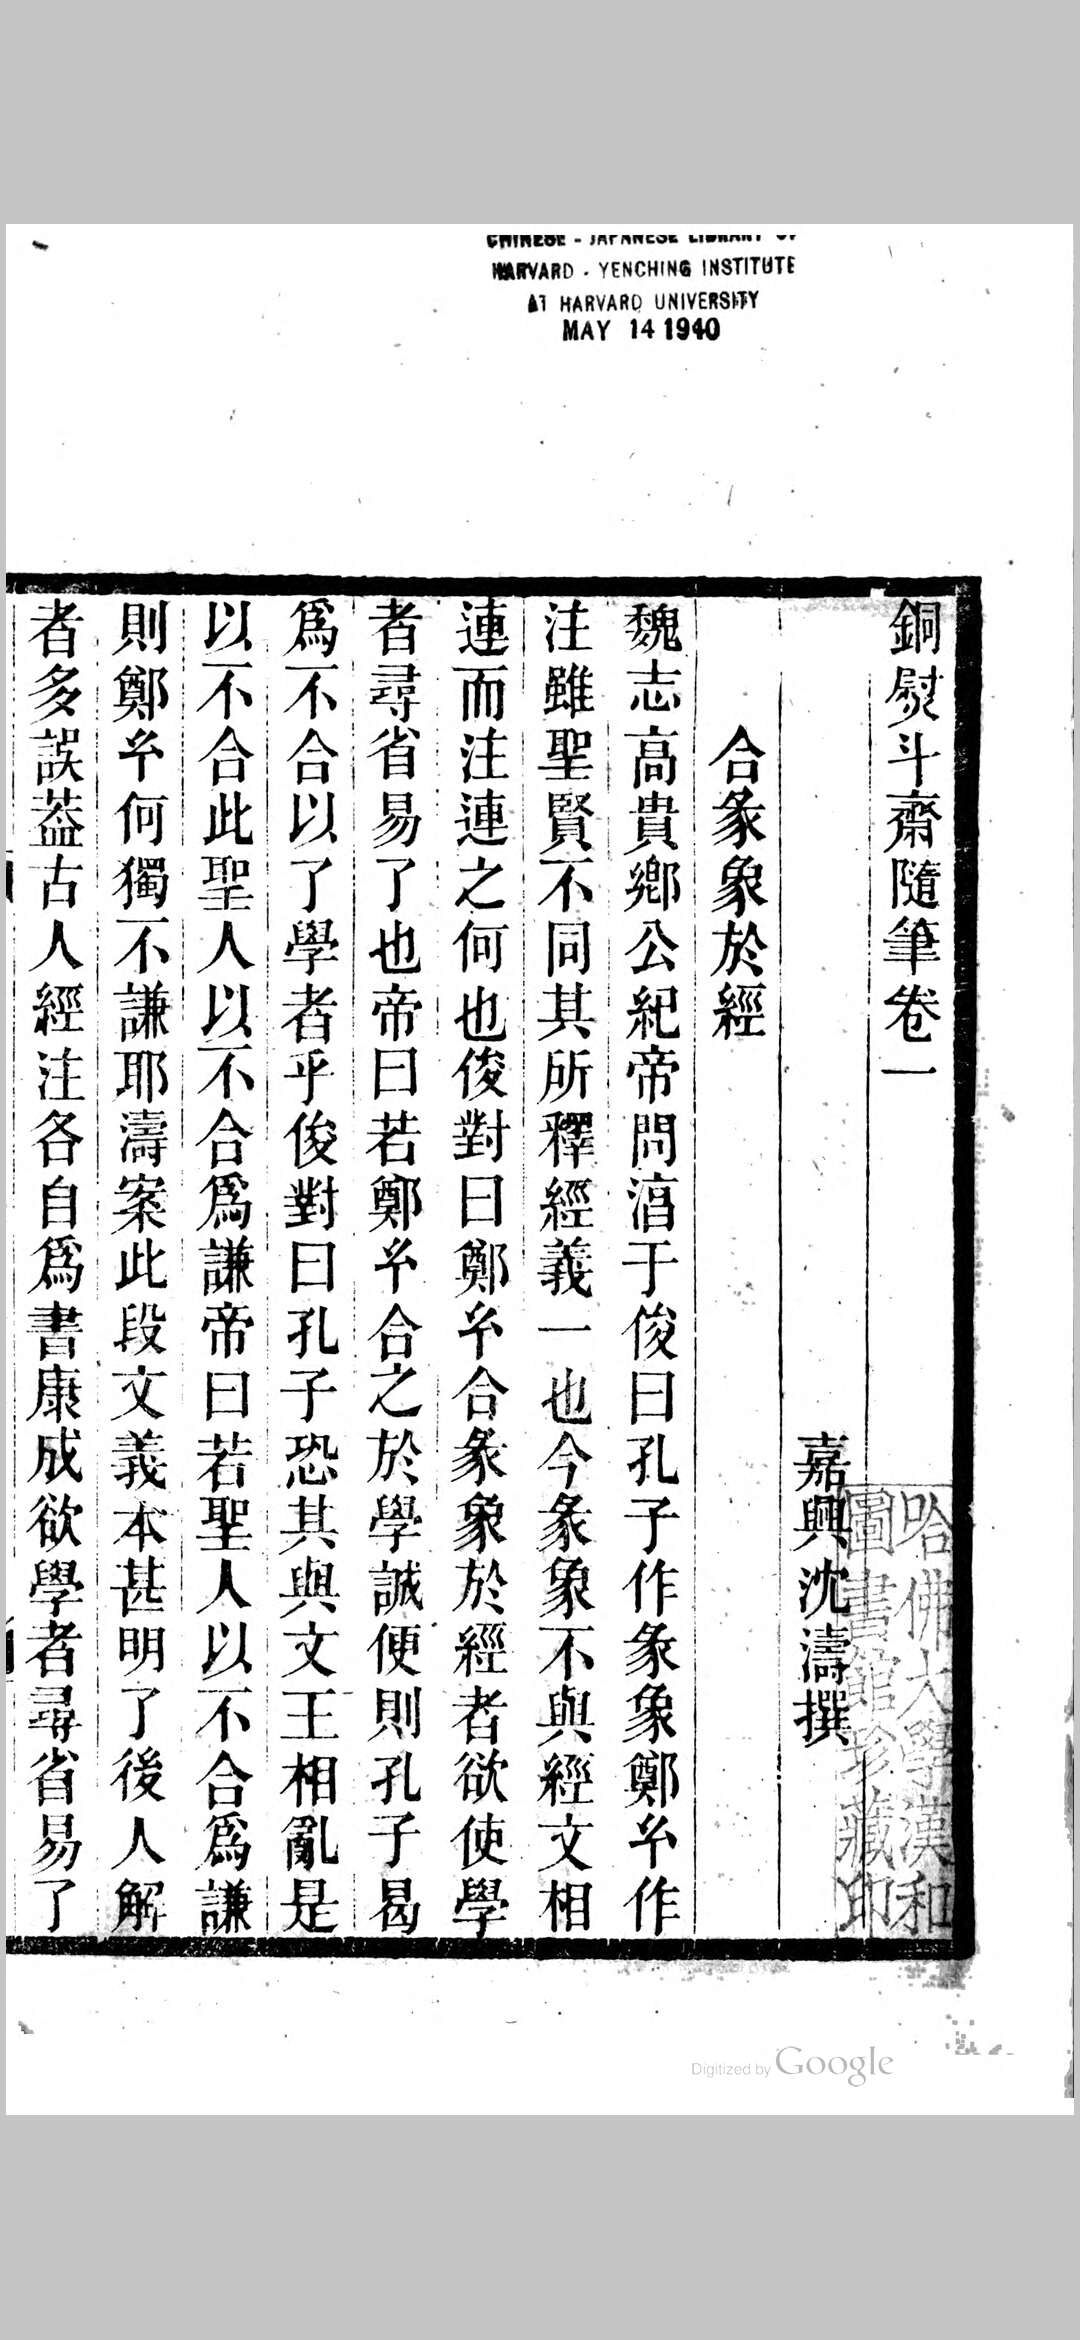 CHINESE - JAPANESE LIBRARY OF
HARVARD - YENCHING INSTITUTE
AT HARVARD UNIVERSITY
MAY 14 1940
銅熨斗齋隨筆卷一
嘉興沈濤撰
哈佛大學漢和
圖書館珍藏印
合彖象於經
魏志高貴鄉公紀帝問淯于俊曰孔子作彖象鄭𢆯作
注雖聖賢不同其所釋經義一也今彖象不與經文相
連而注連之何也俊對曰鄭𢆯合彖象於經者欲使學
者尋省易了也帝曰若鄭𢆯合之於學誠便則孔子曷
爲不合以了學者乎俊對曰孔子恐其與文王相亂是
以不合此聖人以不合爲謙帝曰若聖人以不合爲謙
則鄭𢆯何獨不謙耶濤案此段文義本甚明了後人解
者多誤葢古人經注各自爲書康成欲學者尋省易了
Digitized by Google